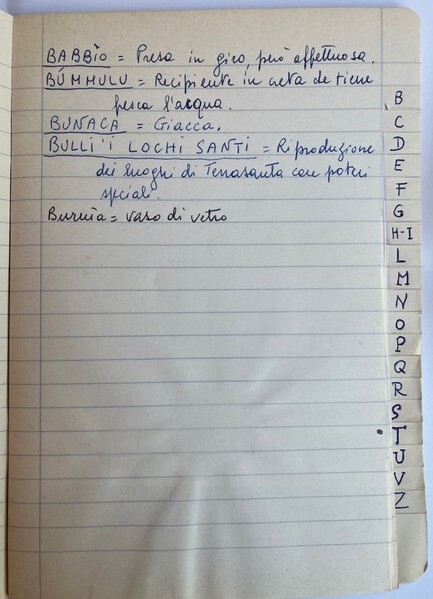 BABBÌO = Presa in giro, però affettuosa.
BÚMMULU = Recipiente in creta che tiene
fresca l'acqua.
BUNACA = Giacca.
BULLI 'I LOCHI SANTI = Riproduzione
dei luoghi di Terrasanta con poteri
speciali.
Burnìa = vaso di vetro
B
C
D
E
F
G
H-I
L
M
N
O
P
Q
R
S
T
U
V
Z